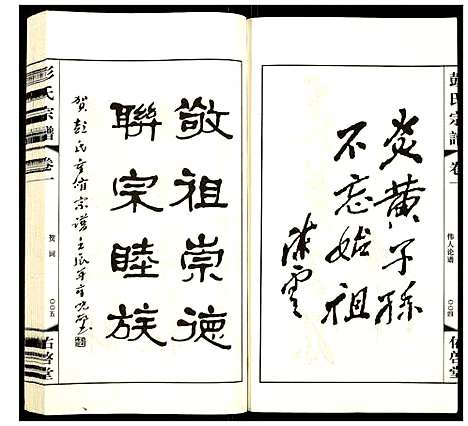 彭氏宗譜
卷一
伟人论谱
〇〇四
佑啓堂
炎黄子孫
不忘始祖
陈雲
敬祖崇德
聯宗睦族
賀彭氏重修宗譜壬辰年
彭氏宗譜
卷一
贺词
〇〇五
佑啓堂